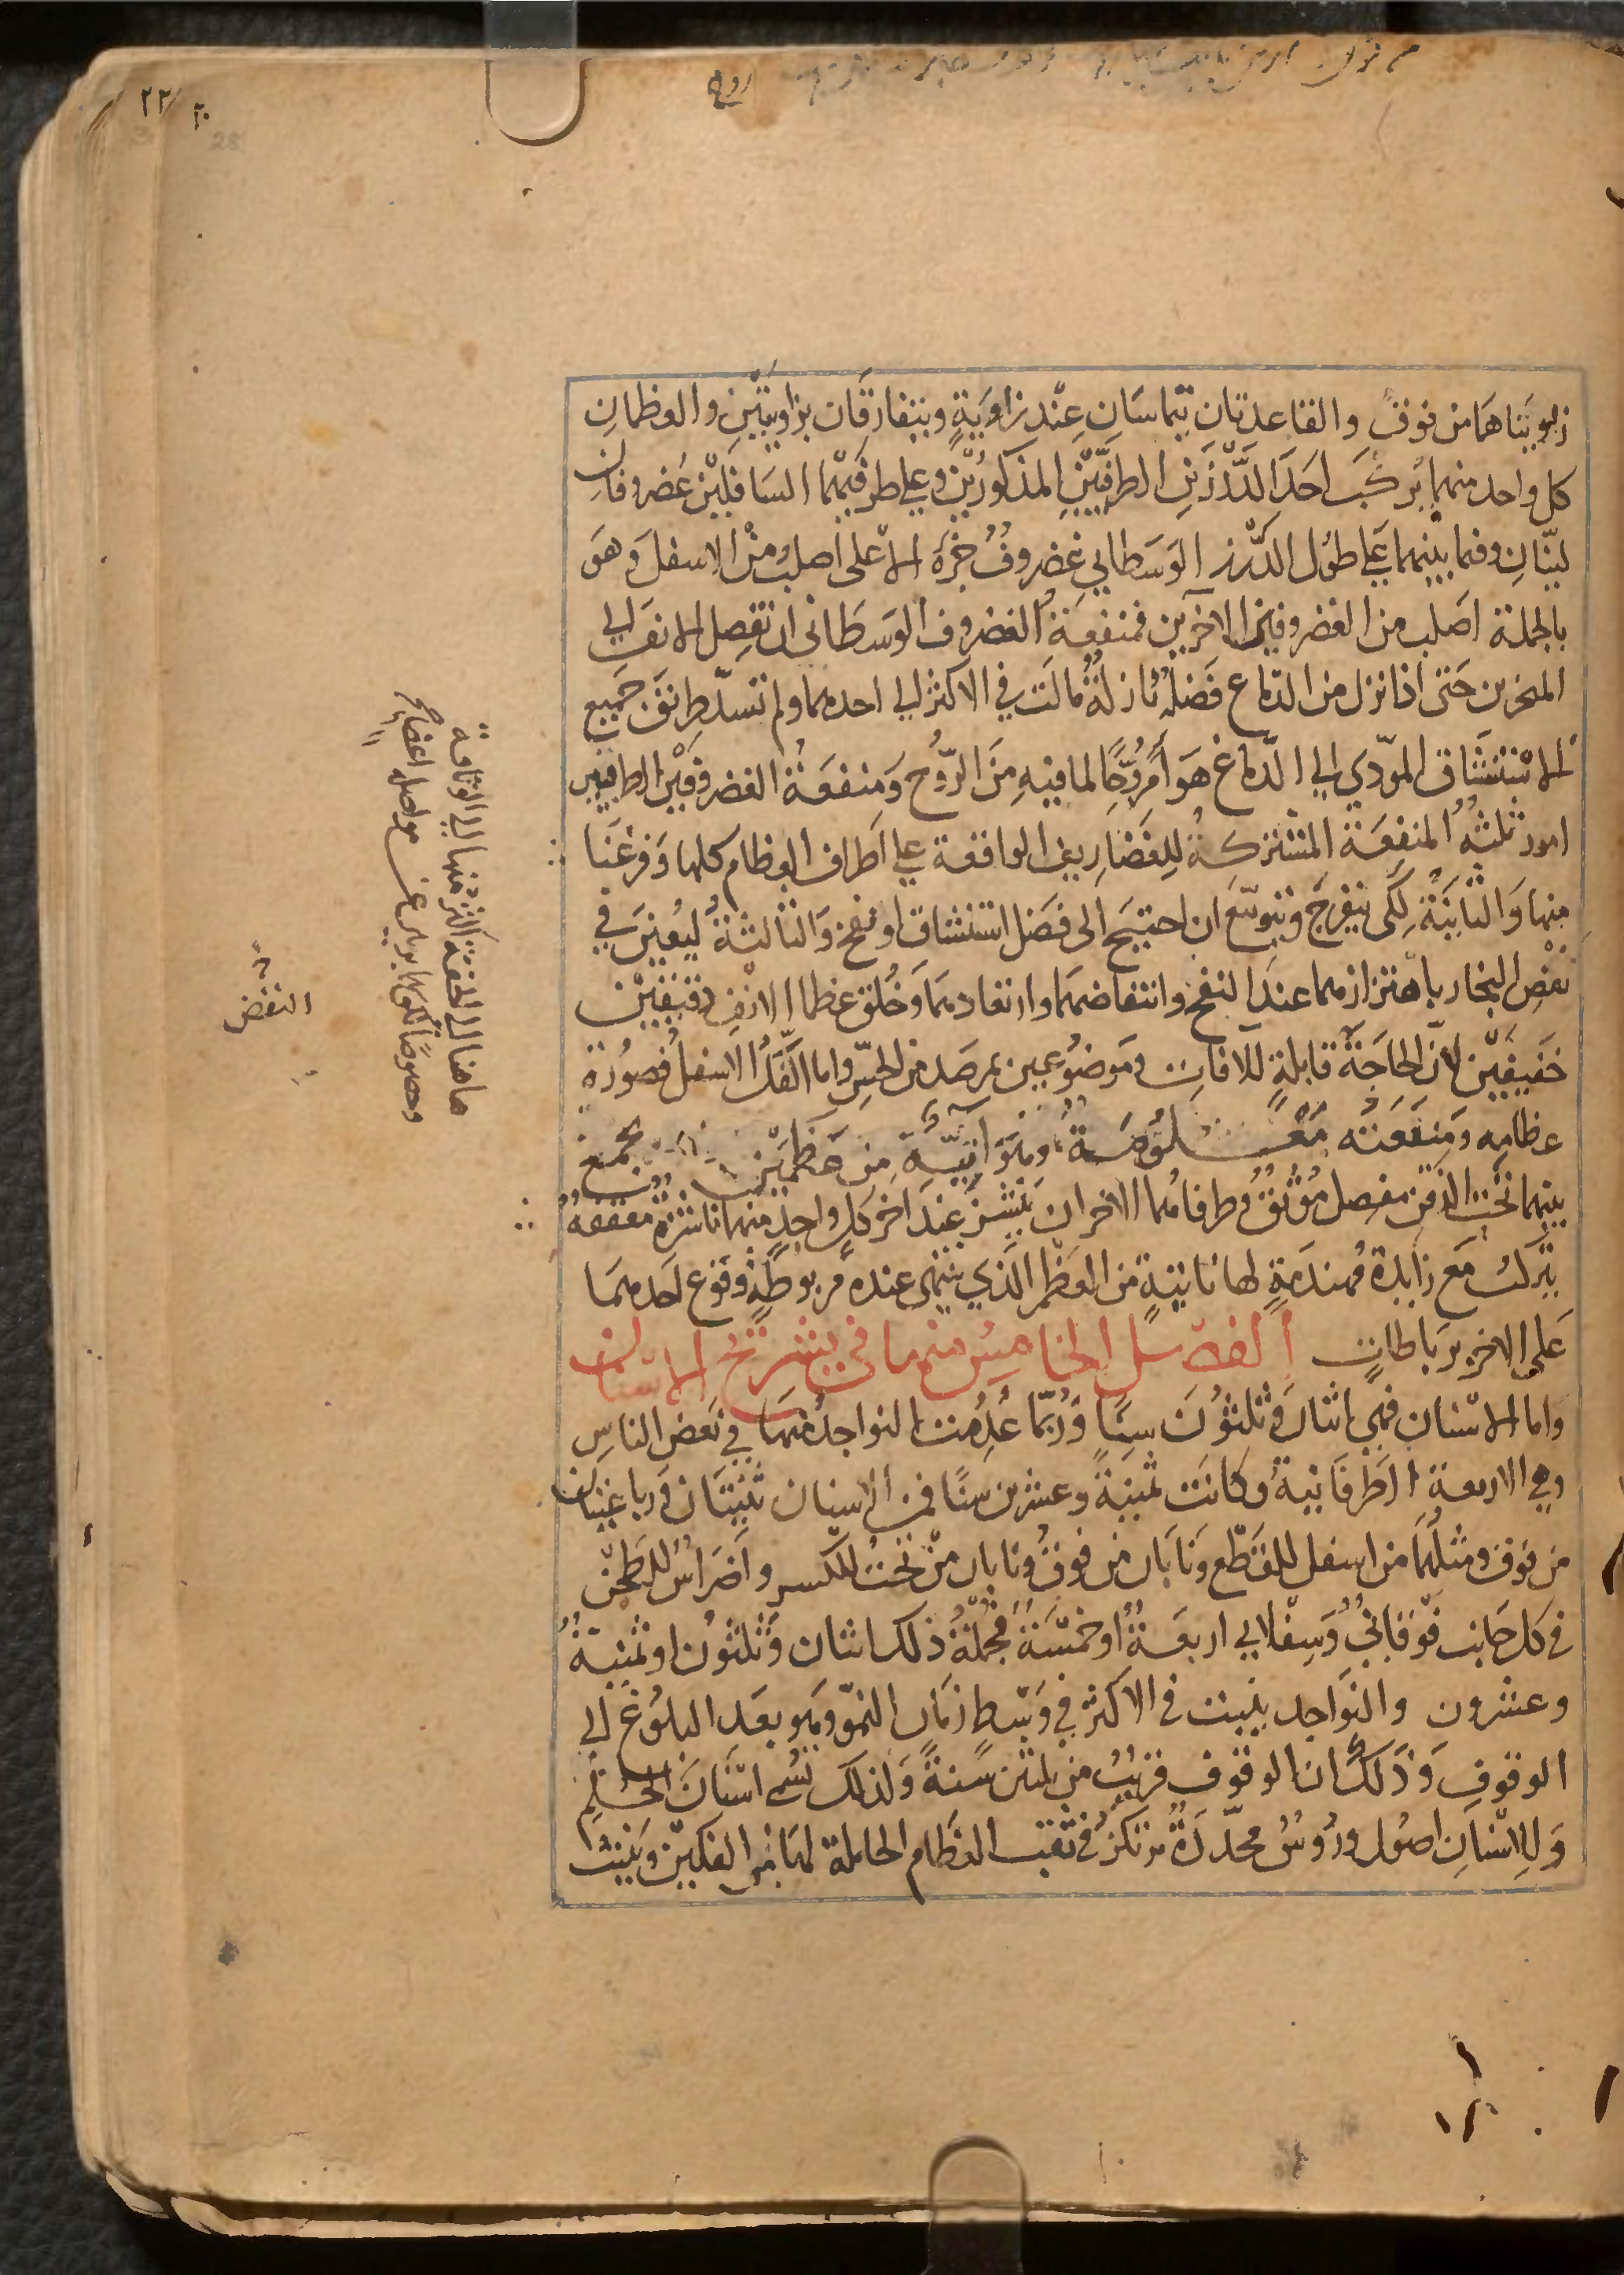 ٢٢
زاويتاهما من فوق والقاعدتان تتماسان عند زاوية وتتفارقان بزاويتين والعظمان
كل واحد منهما يركب احد الدرزين الطرفيين المذكورين وعلى طرفيهما السافلين غضروفان
لينان وفيما بينهما على طول الدرز الوسطاني غضروف جزؤه الاعلى اصلب من الاسفل وهو
بالجملة اصلب من الغضروفين الاخرين فمنفعة الغضروف الوسطاني ان تفصل الانف الى
المنخرين حتى اذا نزل من الدماغ فضلة نازلة مالت في الاكثر الى احدهما ولم تسد طريق جميع
الاستنشاق المؤدي الى الدماغ هوا مروحا لما فيه من الروح ومنفعة الغضروفين الطرفيين
امور ثلثة المنفعة المشتركة للغضاريف الواقعة على اطراف العظام كلها وفرغنا
منها والثانية لكى ينفرج ويتوسع ان احتيج الى فضل استنشاق او نفخ والثالثة ليعين في
نفض البخار باهتزازهما عند النفخ وانتفاضهما وارتعادهما وخلق عظما الانف دقيقين
خفيفين لان الحاجة قابلة للافات وموضوعين بمرصد من الحس واما الفك الاسفل فصورة
عظامه ومنفعته معلومة وهو انه من عظمين يجمع
بينهما تحت الذقن مفصل موثق وطرفاهما الاخران ينشز عند اخر كل واحد منهما ناشزة معقفة
يتركب مع زايدة مهندمة لها نابتة من العظم الذي ينتهى عنده مربوطة وقوع احدهما
على الاخر برباطات الفصل الخامس منها في تشريح الاسنان
واما الاسنان فهي اثنان وثلثون سنا وربما عدمت النواجد منها في بعض الناس
وهي الاربعة الطرفانية وكانت ثمنية وعشرين سنا فمن الاسنان ثنيتان ورباعيتان
من فوق ومثلهما من اسفل للقطع ونابان من فوق ونابان من تحت للكسر واضراس للطحن
في كل جانب فوقاني وسفلاني اربعة او خمسة فجملة ذلك اثنان وثلثون او ثمنية
وعشرون والنواجد ينبت في الاكثر في وسط زمان النمو وهو بعد البلوغ الى
الوقوف وذلك ان الوقوف قريب من ثلثين سنة ولذلك تسمى اسنان الحلم
وللاسنان اصول ورؤس محددة ترتكز في ثقب العظام الحاملة لها من الفكين وينبت
هاهنا الى الخفة اكثر منها الى الوثاقة
وخصوصا لكونها
النفض